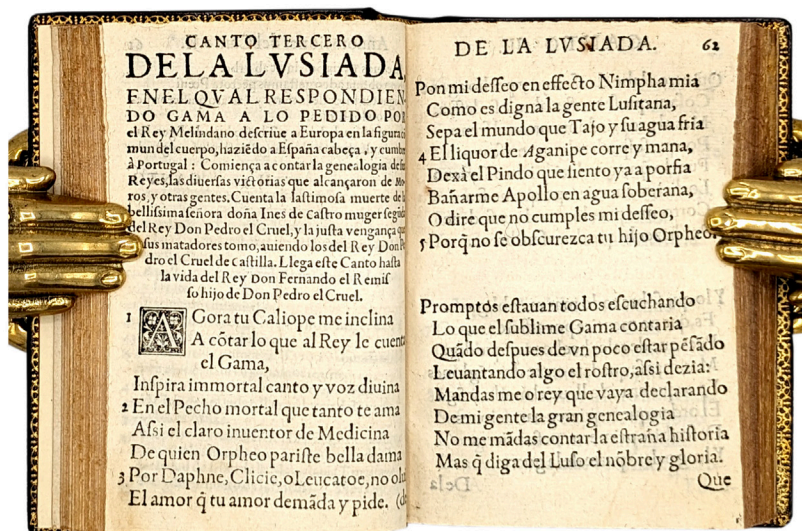 CANTO TERCERO
DE LA LVSIADA,
EN EL QVAL RESPONDIEN
DO GAMA A LO PEDIDO POR
el Rey Melindano descriue a Europa en la figura
mun del cuerpo, haziẽdo a España cabeça, y cumbre
à Portugal: Comiença a contar la genealogia de
Reyes, las diuersas victorias que alcançaron de
ros, y otras gentes. Cuenta la lastimosa muerte de
bellissima señora doña Ines de Castro muger
del Rey Don Pedro el Cruel, y la justa vengança
sus matadores tomo, auiendo los del Rey Don
dro el Cruel de castilla. Llega este Canto hasta
la vida del Rey Don Fernando el Remis
so hijo de Don Pedro el Cruel.
1 AGora tu Caliope me inclina
A cõtar lo que al Rey le cuenta
el Gama,
Inspira immortal canto y voz diuina
2 En el Pecho mortal que tanto te ama
Assi el claro inuentor de Medicina
De quien Orpheo pariste bella dama
3 Por Daphne, Clicie, o Leucatoe, no
El amor q̃ tu amor demãda y pide.
DE LA LVSIADA. 62
Pon mi desseo en effecto Nimpha mia
Como es digna la gente Lusitana,
Sepa el mundo que Tajo y su agua fria
4 El liquor de Aganipe corre y mana,
Dexa el Pindo que siento ya a porfia
Bañarme Apollo en agua soberana,
O dire que no cumples mi desseo,
5 Porq̃ no se obscurezca tu hijo Orpheo.
Promptos estauan todos escuchando
Lo que el sublime Gama contaria
Quãdo despues de vn poco estar pẽsãdo
Leuantando algo el rostro, assi dezia:
Mandas me o rey que vaya declarando
De mi gente la gran genealogia
No me mãdas contar la estraña historia
Mas q̃ diga del Luso el nõbre y gloria.
Que